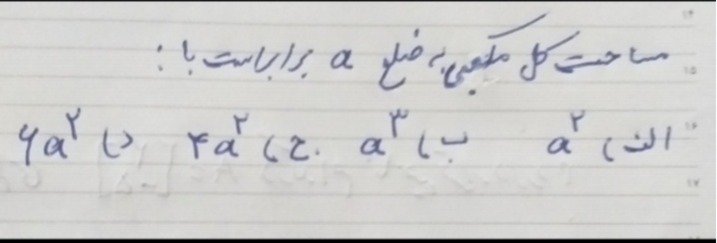 مساحت کل مکعبی به ضلع a برابر است با:
الف) a² ب) a³ ج) ۴a² د) ۶a²